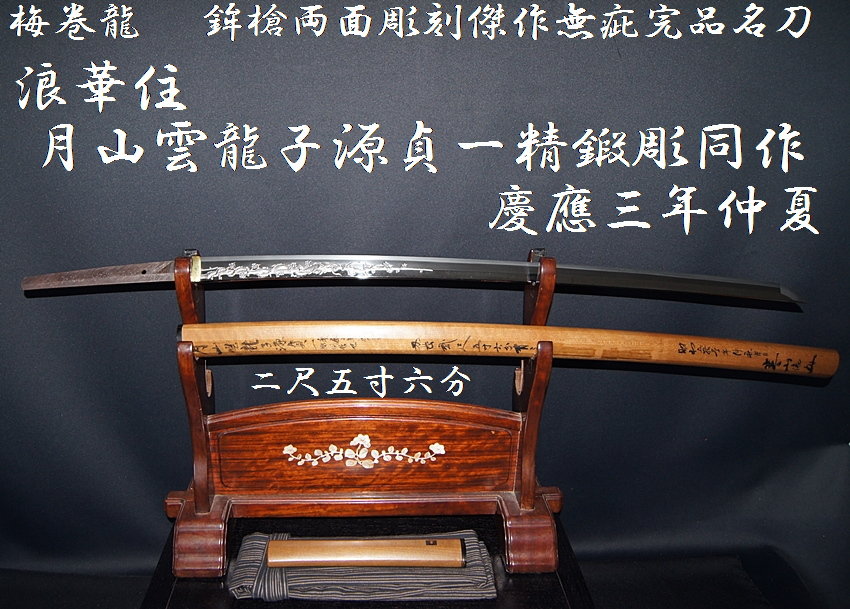 梅巻龍　鉾槍両面彫刻傑作無疵完品名刀
浪華住
月山雲龍子源貞一精鍛彫同作
慶應三年仲夏
二尺五寸六分